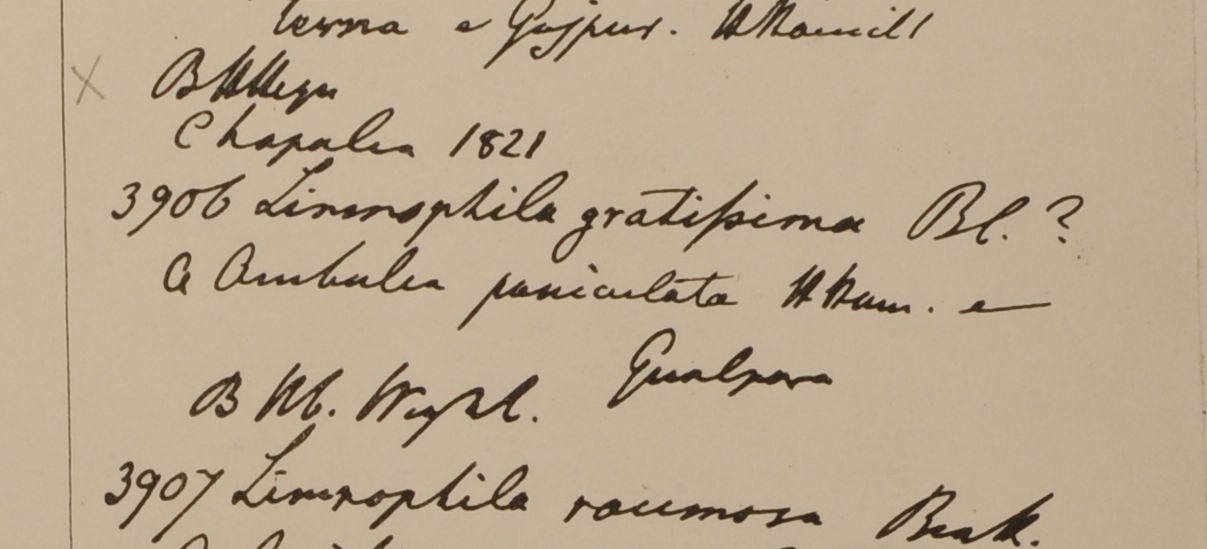 terna e Gujpur. HHamill
X B HHegu
Chapalea 1821
3906 Limnophila gratissima Bl. ?
a Ambulia paniculata HHam. e
Gualpara
B Hb. Wight.
3907 Limnophila racemosa Benth.